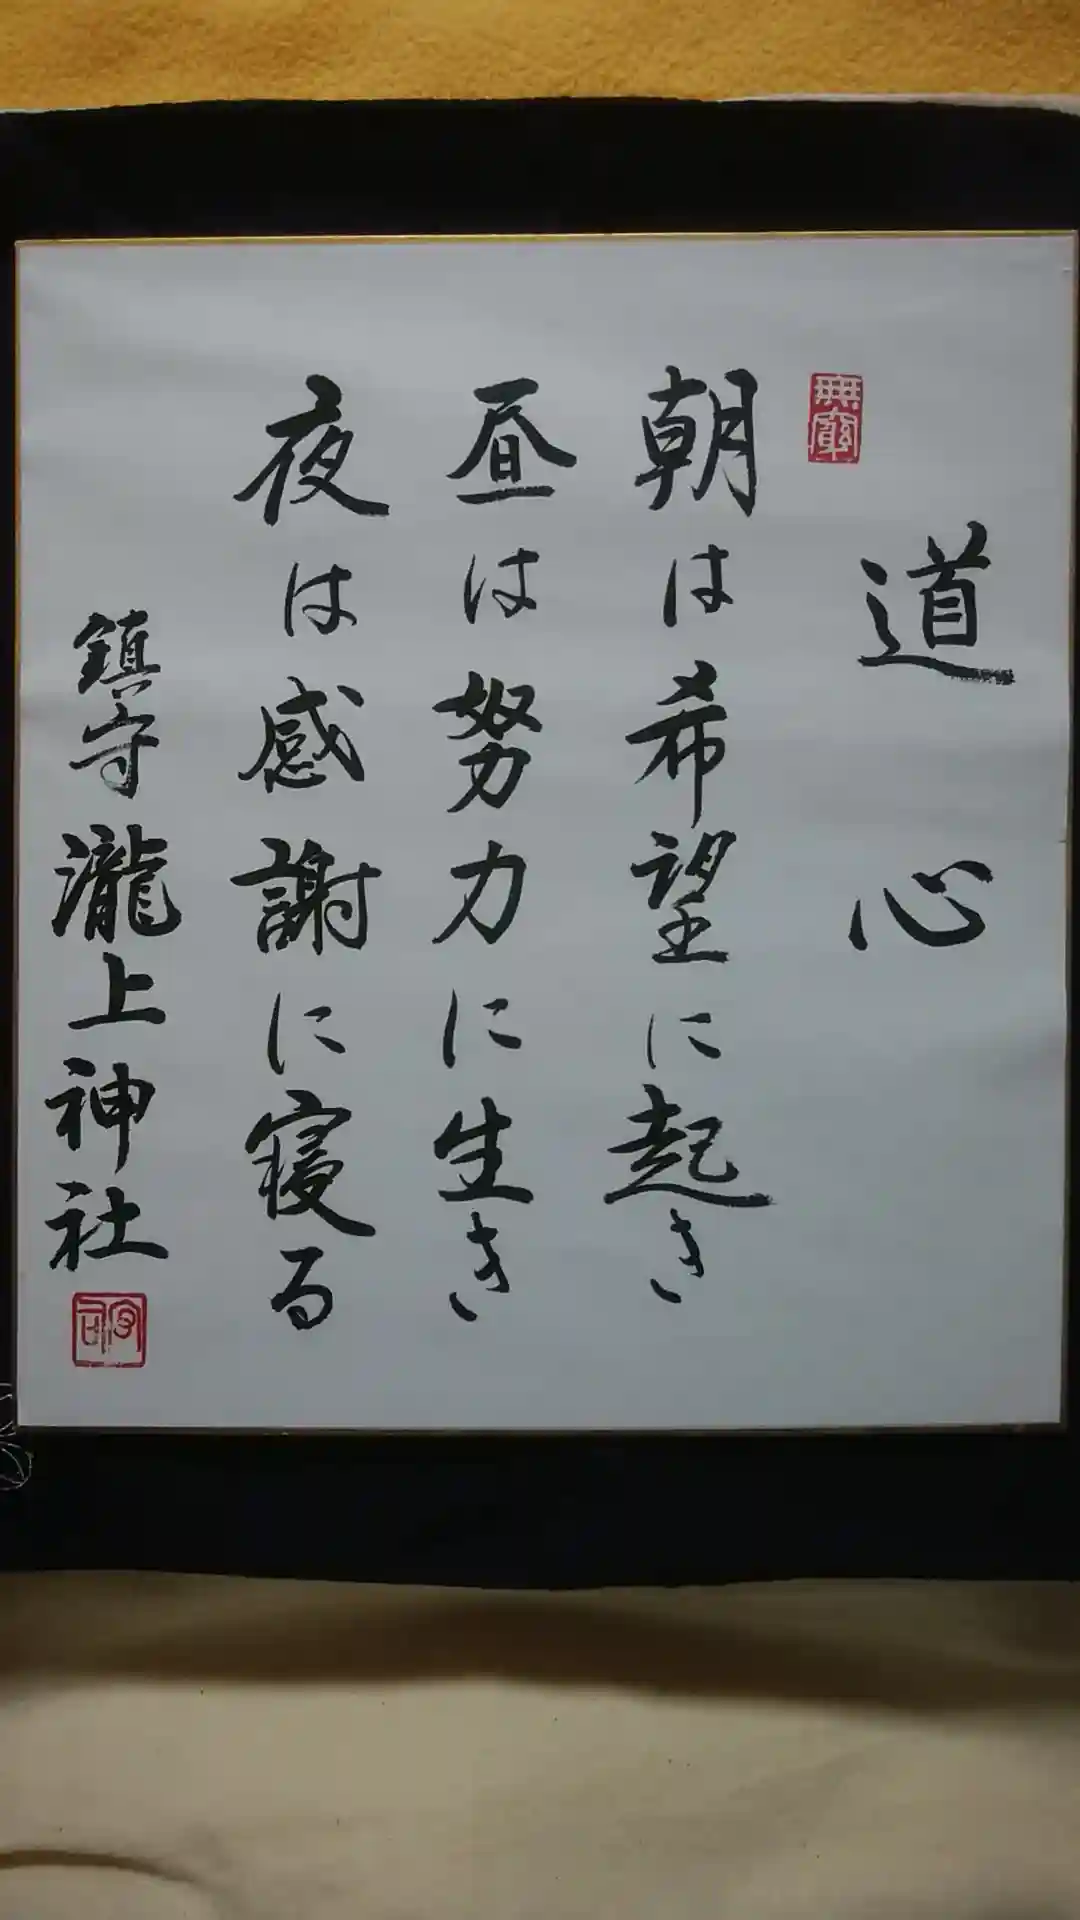 無窮
道心
朝は希望に起き
昼は努力に生き
夜は感謝に寝る
鎮守瀧上神社